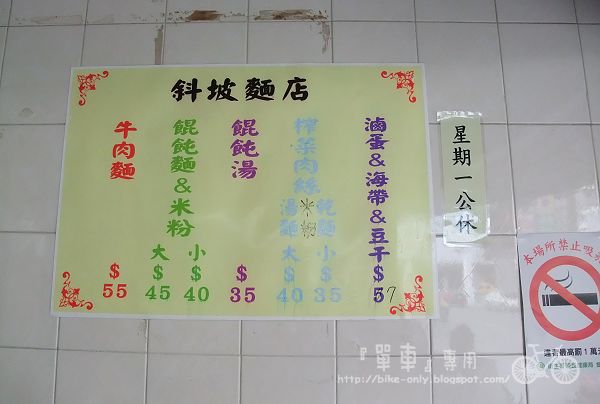 斜坡麵店
滷蛋&海帶&豆干
$
57
榨菜肉絲
乾麵 湯麵
小 大
$ $
35 40
餛飩湯
$
35
餛飩麵&米粉
小 大
$ $
40 45
牛肉麵
$
55
星期一公休
本場所禁止吸
違者最高罰1萬元
『單車』專用
http://bike-only.blogspot.com/